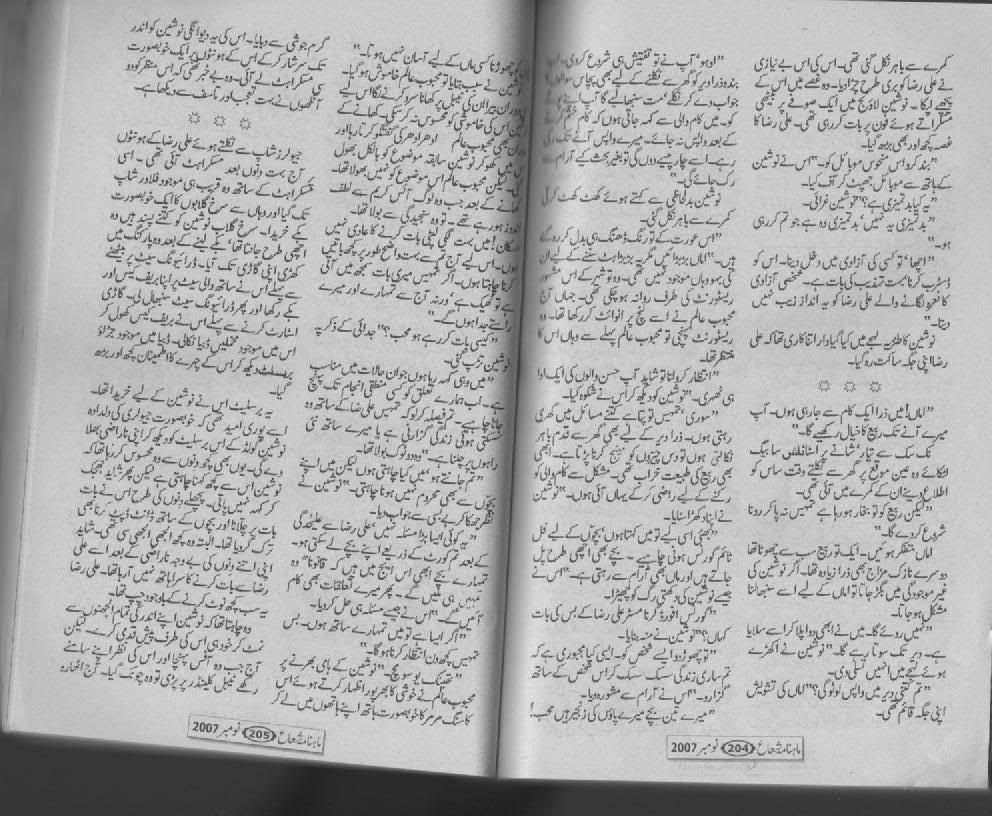 کمرے سے باہر نکل گئی تھی۔ اس کی اس بے نیازی
نے علی رضا کو بری طرح چڑا دیا۔ وہ غصے میں اس کے
پیچھے لپکا۔ نوشین لاؤنج میں ایک صوفے پر بیٹھی
مسکراتے ہوئے فون پر بات کر رہی تھی۔ علی رضا کا
غصہ کچھ اور بھی بڑھ گیا۔
"بند کرو اس منحوس موبائل کو۔" اس نے نوشین
کے ہاتھ سے موبائل جھپٹ کر آف کیا۔
"یہ کیا بدتمیزی ہے؟" نوشین غرائی۔
"بدتمیزی یہ نہیں، بدتمیزی وہ ہے جو تم کر رہی
ہو۔"
"اچھا، تو کسی کی آزادی میں دخل دینا۔ اس کو
ڈسٹرب کرنا بہت تہذیب کی بات ہے۔ شخصی آزادی
کا نعرہ لگانے والے علی رضا کو یہ انداز زیب نہیں
دیتا۔"
نوشین کا طنزیہ لہجے میں کیا گیا وار اتنا کاری تھا کہ علی
رضا اپنی جگہ ساکت رہ گیا۔
"اماں! میں ذرا ایک کام سے جا رہی ہوں۔ آپ
میرے آنے تک ربیع کا خیال رکھیے گا۔"
تک سک سے تیار، شانے پر اسٹائلش سا بیگ
لٹکائے وہ عین موقع پر گھر سے نکلتے وقت ساس کو
اطلاع دینے ان کے کمرے میں آئی تھی۔
"لیکن ربیع کو تو بخار ہو رہا ہے تمہیں نہ پا کر رونا
شروع کر دے گا۔"
اماں متفکر ہوئیں۔ ایک تو ربیع سب سے چھوٹا تھا
دوسرے نازک مزاج بھی ذرا زیادہ تھا۔ اگر نوشین کی
غیر موجودگی میں بگڑ جاتا تو اماں کے لیے اسے سنبھالنا
مشکل ہو جاتا۔
"نہیں روئے گا۔ میں نے ابھی دوا پلا کر اسے سلایا
ہے۔ دیر تک سوتا رہے گا۔" نوشین نے اکھڑے
ہوئے لہجے میں انہیں تسلی دی۔
"تم کتنی دیر میں واپس لوٹو گی؟" اماں کی تشویش
اپنی جگہ قائم تھی۔
"اوہو، آپ نے تو تفتیش ہی شروع کر دی۔
بندہ ذرا دیر کو گھر سے نکلنے کے لیے بھی پچاس سوالوں
جواب دے کر نکلے، مت سنبھالیے گا آپ اپنے پوتے
کو۔ میں کام والی سے کہہ جاتی ہوں کہ کام ختم کرنے
کے بعد واپس نہ جائے۔ میرے واپس آنے تک
رہے۔ اسے چار پیسے دوں گی تو بغیر بحث کیے آرام سے
رک جائے گی۔"
نوشین بدلحاظی سے کہتے ہوئے کھٹ کھٹ کرتی
کمرے سے باہر نکل گئی۔
"اس عورت کے تو رنگ ڈھنگ ہی بدل کر رہ گئے
ہیں۔" اماں بڑبڑائیں مگر یہ بڑبڑاہٹ سننے کے لیے ان
کی بہو وہاں موجود نہیں تھی۔ وہ تو شہر کے اس مشہور
ریسٹورنٹ کی طرف روانہ ہو چکی تھی۔ جہاں آج
محبوب عالم نے اسے لنچ پر انوائٹ کر رکھا تھا۔ وہ
ریسٹورنٹ پہنچی تو محبوب عالم پہلے سے وہاں اس کا
منتظر تھا۔
"انتظار کروانا تو شاید آپ حسن والوں کی ایک ادا
ہی ٹھہری۔" نوشین کو دیکھ کر اس نے شکوہ کیا۔
"سوری، تمہیں تو پتا ہے کتنے مسائل میں گھری
رہتی ہوں۔ ذرا دیر کے لیے بھی گھر سے قدم باہر
نکالتی ہوں تو دس چیزوں کو مینیج کرنا پڑتا ہے۔ ابھی
بھی ربیع کی طبیعت خراب تھی۔ مشکل سے کام والی کو
رکنے کے لیے راضی کر کے یہاں آئی ہوں۔" نوشین
نے اپنا دکھڑا سنایا۔
"بھئی اسی لیے تو میں کہتا ہوں، بچوں کے لیے فل
ٹائم گورنس ہونی چاہیے۔ بچے بھی اچھی طرح پل
جاتے ہیں اور ماں بھی آرام سے رہتی ہے۔" اس نے
جیسے نوشین کی دکھتی رگ کو چھیڑا۔
"گورنس افورڈ کرنا مسٹر علی رضا کے بس کی بات
کہاں؟" نوشین نے منہ بنایا۔
"تو چھوڑ دو ایسے شخص کو۔ ایسی کیا مجبوری ہے کہ
تم ساری زندگی سسک سسک کر اس شخص کے ساتھ
گزارو۔" اس نے آرام سے مشورہ دیا۔
"میرے تین بچے میرے پاؤں کی زنجیر ہیں محب!
ماہنامہ شعاع 204 نومبر 2007
کو چھوڑنا کسی ماں کے لیے آسان نہیں ہوتا۔"
نوشین نے سبب بتایا تو محبوب عالم خاموش ہو گیا۔
دوران بیرا ان کی ٹیبل پر کھانا سرو کرنے لگا اس لیے
اس کی خاموشی کو محسوس نہ کر سکی۔ کھانے کے
بھی محبوب عالم ادھر ادھر کی گفتگو کرتا رہا اور
میں کھو کر نوشین سابقہ موضوع کو بالکل بھول
لیکن محبوب عالم اس موضوع کو نہیں بھولا تھا۔
کھانے کے بعد جب وہ لوگ آئس کریم سے لطف
اندوز ہو رہے تھے۔ تو وہ سنجیدگی سے بولا تھا۔
میں بہت لگی لپٹی بات کرنے کا عادی نہیں
ہوں۔ اس لیے آج تم سے بہت واضح طور پر کچھ باتیں
کرنا چاہتا ہوں۔ اگر تمہیں میری بات سمجھ میں آئی
ہے تو ٹھیک ہے، ورنہ آج سے تمہارے اور میرے
راستے جدا ہوں گے۔"
"کیسی بات کر رہے ہو محب؟" جدائی کے ذکر پہ
نوشین تڑپ گئی۔
"میں وہی کہہ رہا ہوں جو ان حالات میں مناسب
ہے۔ اب ہمارے تعلق کو کسی منطقی انجام تک پہنچ
جانا چاہیے۔ تم فیصلہ کرلو کہ تمہیں علی رضا کے ساتھ وہ
سسکتی ہوئی زندگی گزارنی ہے یا میرے ساتھ نئی
راہوں پر چلنا ہے۔" وہ دو ٹوک بولا تھا۔
"تم جانتے ہو، میں کیا چاہتی ہوں لیکن میں اپنے
بچوں سے بھی محروم نہیں ہونا چاہتی۔" نوشین نے
نظر جھکا کر بے بسی سے جواب دیا۔
"یہ کوئی ایسا بڑا مسئلہ نہیں، علی رضا سے علیحدگی
کے بعد تم کورٹ کے ذریعے اپنے بچے لے سکتی ہو۔
تمہارے بچے ابھی اس ایج میں ہیں کہ قانوناً وہ
تمہیں ہی ملیں گے۔ پھر میرے تعلقات بھی کام
آئیں گے۔" اس نے جیسے مسئلہ ہی حل کر دیا۔
"اگر ایسا ہے تو میں تمہارے ساتھ ہوں۔ بس
تمہیں کچھ دن انتظار کرنا ہو گا۔"
"تھینک یو سو مچ۔" نوشین کے ہامی بھرنے پر
محبوب عالم نے خوشی کا بھرپور اظہار کرتے ہوئے اس
کا سنگ مرمر کا خوبصورت ہاتھ اپنے ہاتھوں میں لے کر
گرم جوشی سے دبایا۔ اس کی یہ دیوانگی نوشین کو اندر
تک سرشار کر کے اس کے ہونٹوں پر ایک خوبصورت
سی مسکراہٹ لے آئی۔ وہ بے خبر تھی کہ اس منظر کو دو
آنکھوں نے بہت تعجب اور تاسف سے دیکھا ہے۔
جیولرز شاپ سے نکلتے ہوئے علی رضا کے ہونٹوں
پر آج بہت دنوں بعد مسکراہٹ آئی تھی۔ اسی
مسکراہٹ کے ساتھ وہ قریب ہی موجود فلاور شاپ
تک گیا اور وہاں سے سرخ گلابوں کا ایک خوبصورت
بکے خریدا۔ سرخ گلاب نوشین کو کتنے پسند ہیں وہ
اچھی طرح جانتا تھا، بکے لینے کے بعد وہ پارکنگ میں
کھڑی اپنی گاڑی تک آیا۔ ڈرائیونگ سیٹ پر بیٹھنے
سے پہلے اس نے ساتھ والی سیٹ پر اپنا بریف کیس اور
بکے رکھا اور پھر ڈرائیونگ سیٹ سنبھال لی۔ گاڑی
اسٹارٹ کرنے سے پہلے اس نے بریف کیس کھول کر
اس میں موجود مخملیں ڈبیا نکالی۔ ڈبیا میں موجود جڑاؤ
بریسلٹ دیکھ کر اس کے چہرے کا اطمینان کچھ اور بڑھ
گیا۔
یہ بریسلیٹ اس نے نوشین کے لیے خریدا تھا۔
اسے پوری امید تھی کہ خوبصورت جیولری کی دلدادہ
نوشین گولڈ کے اس بریسلیٹ کو دیکھ کر اپنی ناراضی بھلا
دے گی۔ یوں بھی کچھ دنوں سے وہ محسوس کر رہا تھا کہ
نوشین اس سے کچھ کہنا چاہتی ہے لیکن پھر شاید جھجک
کر کہہ نہیں پاتی۔ پچھلے دنوں کی طرح اس نے بات
بات پر چلانا اور بچوں کے ساتھ ڈانٹ ڈپٹ کرنا بھی
ترک کر دیا تھا۔ البتہ وہ کچھ الجھی الجھی سی تھی۔ شاید
اپنی اتنے دنوں کی بے وجہ ناراضی کے بعد اسے علی
رضا سے بات کرنے کا سرا ہاتھ نہیں آ رہا تھا۔ علی رضا
یہ سب کچھ نوٹ کرنے کے باوجود چپ تھا۔
وہ چاہتا تھا کہ نوشین اپنے اندر کی تمام الجھنوں سے
نمٹ کر خود ہی اس کی طرف پیش قدمی کرے۔ لیکن
آج جب وہ آفس پہنچا اور اس کی نظر اپنے سامنے
رکھے ٹیبل کلینڈر پر پڑی تو وہ چونک گیا۔ آج اٹھارہ
ماہنامہ شعاع 205 نومبر 2007